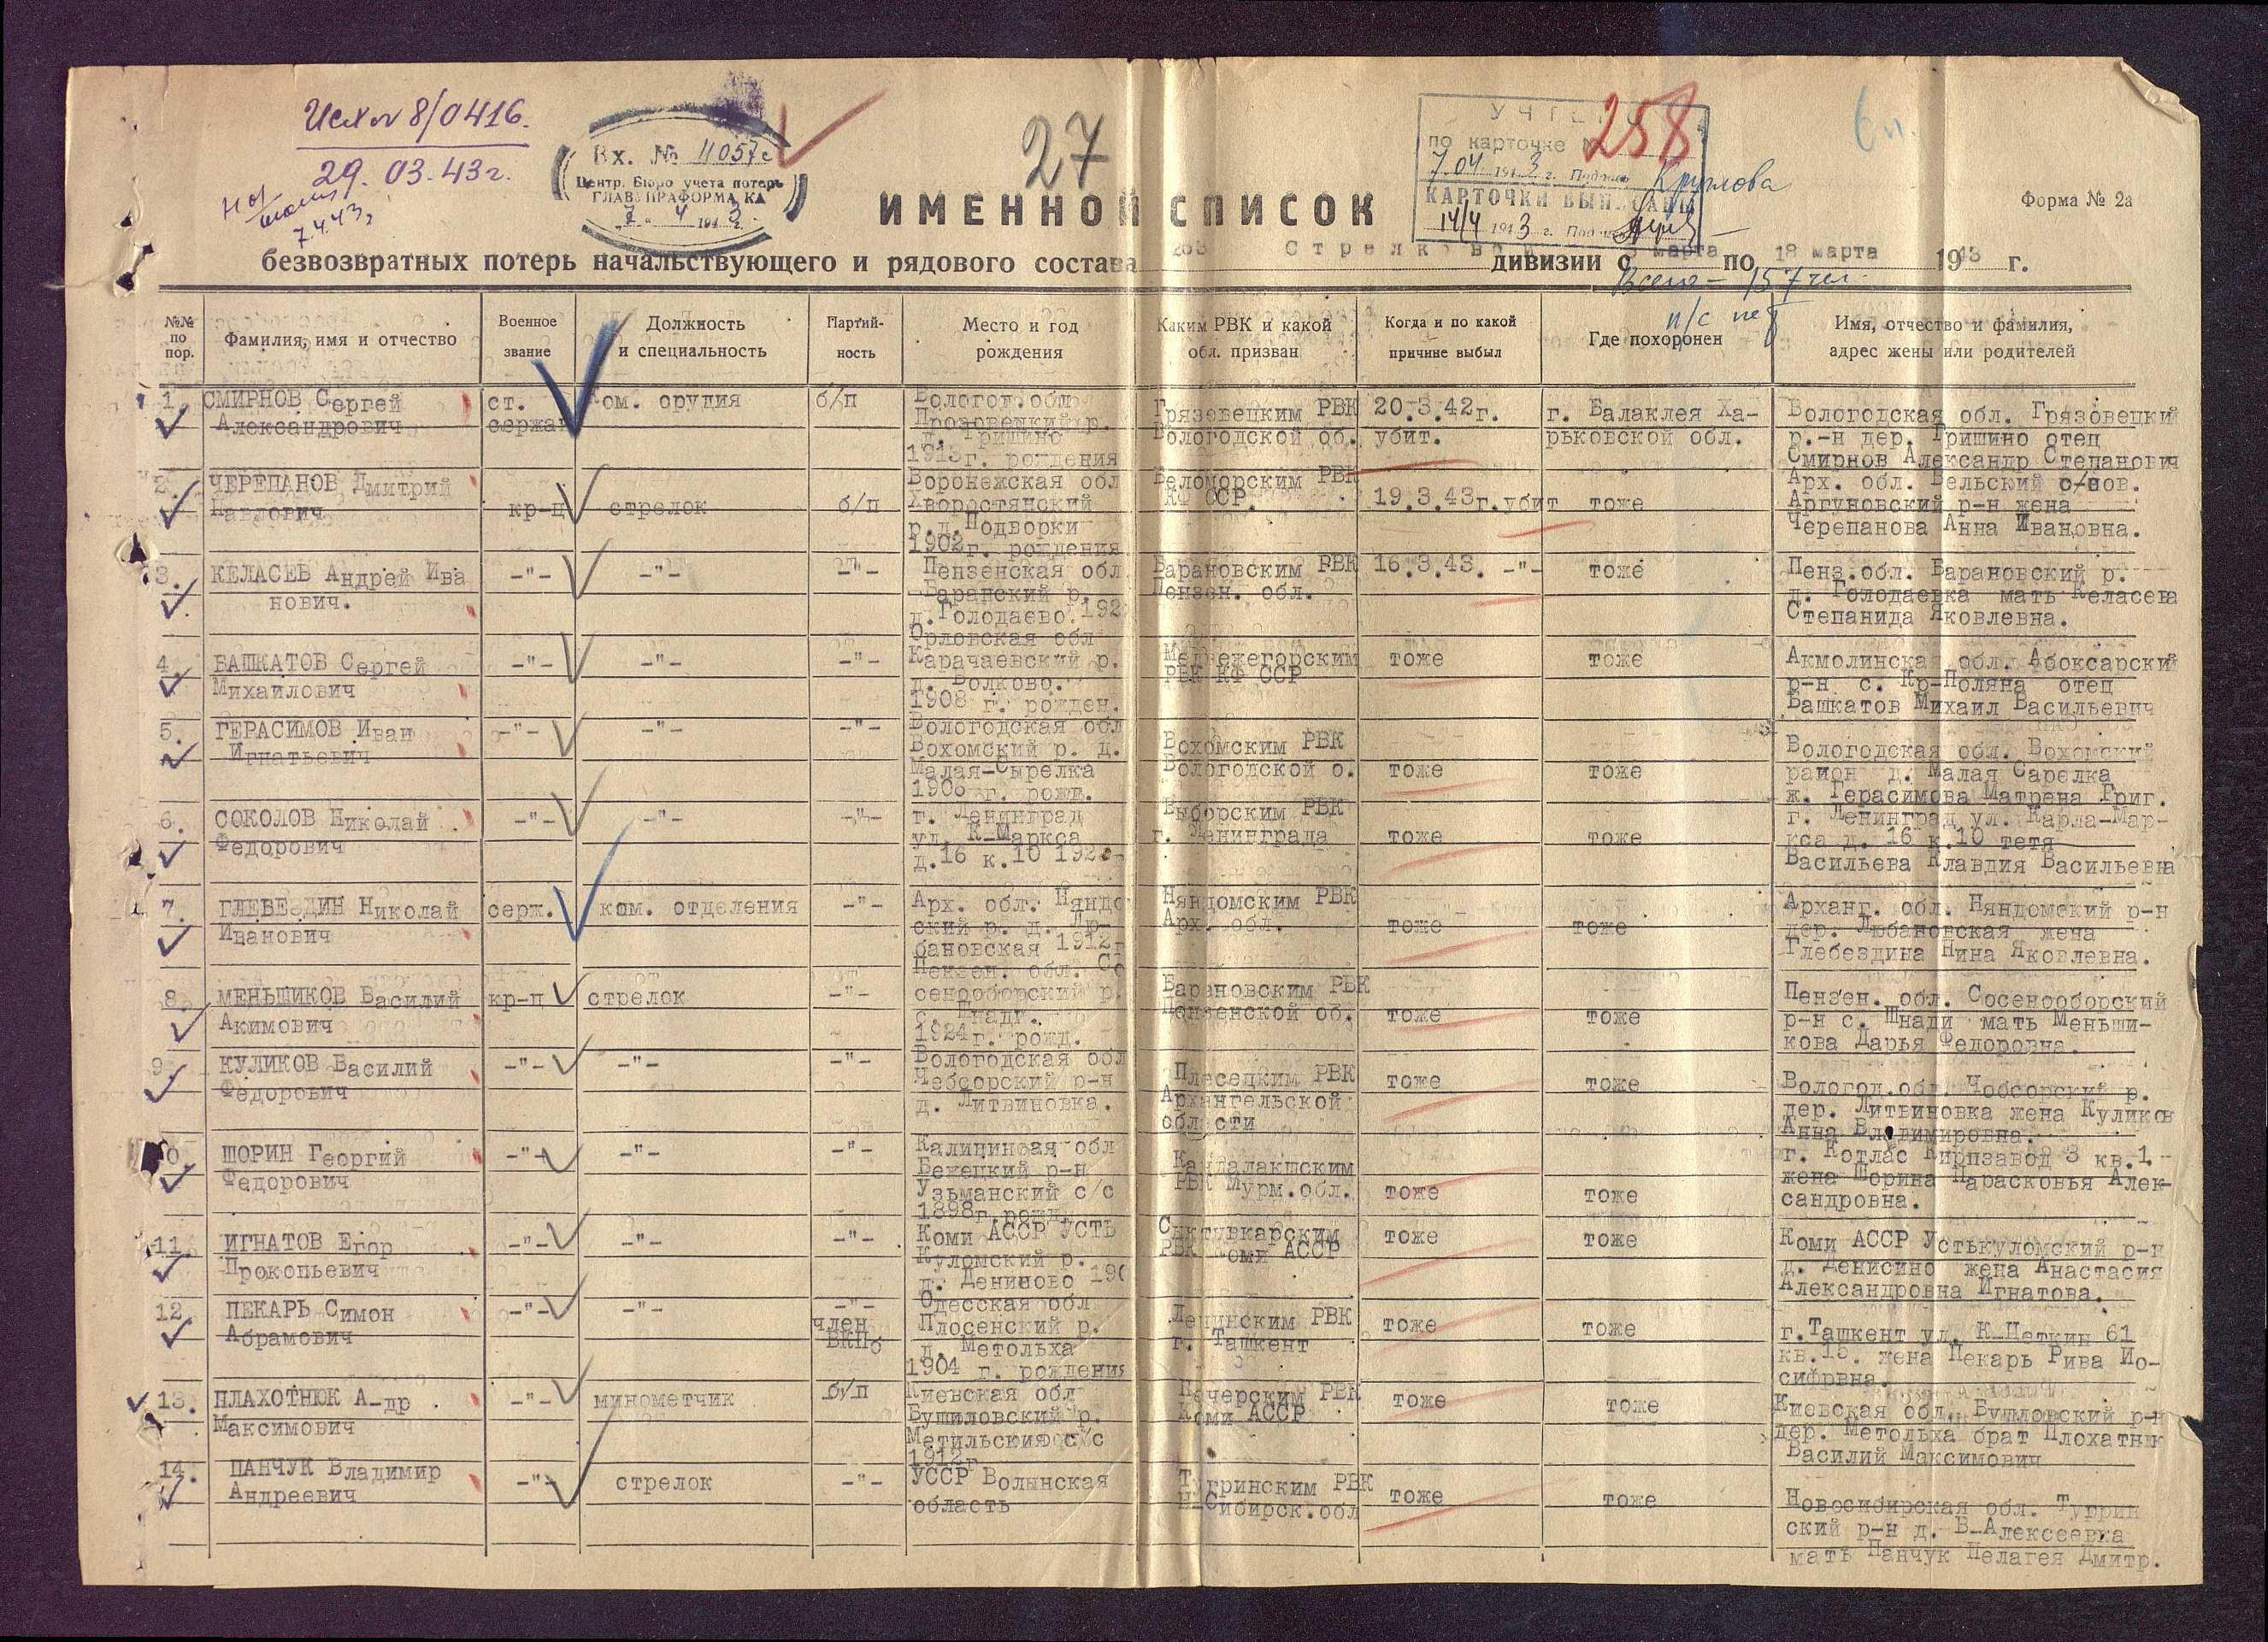 Исх № 8/0416.
29.03.43 г.
Вх. № 11057с
Центр. Бюро учета потерь
ГЛАВУПРАФОРМА КА
7 4 1943 г.
27
УЧТЕНО
по карточке № 258
7.04 1943 г. Подпись Круглова
КАРТОЧКИ ВЫПИСАНЫ
14/4 1943 г. Подпись
6 л.
Форма № 2а
ИМЕННОЙ СПИСОК
безвозвратных потерь начальствующего и рядового состава Стрелковой дивизии с марта по 18 марта 1943 г.
Всего – 157 чел.
н/с нет
№№ по пор.
Фамилия, имя и отчество
Военное звание
Должность и специальность
Партийность
Место и год рождения
Каким РВК и какой обл. призван
Когда и по какой причине выбыл
Где похоронен
Имя, отчество и фамилия, адрес жены или родителей
1. СМИРНОВ Сергей
Александрович
ст.
сержан
ком. орудия
б/п
Вологод.обл
д. Гришино
1913г. рождения
Грязовецким РВК
Вологодской об.
20.3.42г.
убит.
г. Балаклея Ха-
рьковской обл.
Вологодская обл. Грязовецкий
р.-н дер. Гришино отец
Смирнов Александр Степанович
2. ЧЕРЕПАНОВ Дмитрий
Павлович
кр-ц
стрелок
б/п
Воронежская обл
Хворостянский
р.д.Подворки
1902г. рождения
Беломорским РВК
КФ ССР.
19.3.43г.убит
тоже
Арх. обл. Вельский с/нов.
Аргуновский р-н жена
Черепанова Анна Ивановна.
3. КЕЛАСЕВ Андрей Ива
нович.
-"-
-"-
-"-
Пензенская обл
Баранский р.
д.Голодаево.192
Барановским РВК
Пензен. обл.
16.3.43. -"-
тоже
Пенз.обл. Барановский р.
д. Голодаевка мать Келасева
Степанида Яковлевна.
4. БАШКАТОВ Сергей
Михайлович
-"-
-"-
-"-
Орловская обл
Карачаевский р.
д. Волково.
1908 г. рожден.
Медвежегорским
РВК КФ ССР
тоже
тоже
Акмолинская обл. Абоксарский
р-н с. Кр-Поляна отец
Башкатов Михаил Васильевич
5. ГЕРАСИМОВ Иван
Игнатьевич
-"-
-"-
-"-
Вологодская обл
Вохомский р. д.
Малая-Сырелка
1906 г. рожд.
Вохомским РВК
Вологодской о.
тоже
тоже
Вологодская обл. Вохомский
район д. Малая Сарелка
ж. Герасимова Матрена Григ.
6. СОКОЛОВ Николай
Федорович
-"-
-"-
-"-
г. Ленинград
ул. К-Маркса
д.16 к.10 192
Выборским РВК
г. Ленинграда
тоже
тоже
г. Ленинград ул. Карла-Мар-
кса д. 16 к.10 тетя
Васильева Клавдия Васильевна
7. ГЛЕБЕЗДИН Николай
Иванович
серж.
ком. отделения
-"-
Арх. обл. Няндо
ский р. д. Лю-
бановская 1912г
Няндомским РВК
Арх. обл.
тоже
тоже
Арханг. обл. Няндомский р-н
дер. Любановская жена
Глебездина Нина Яковлевна.
8. МЕНЬШИКОВ Василий
Акимович
кр-ц
стрелок
-"-
Пензен. обл. Со
сеноборский р.
с. Шнади.
1924г. рожд.
Барановским РВК
Пензенской об.
тоже
тоже
Пензен. обл. Сосенооборский
р-н с. Шнади мать Меньши-
кова Дарья Федоровна.
9. КУЛИКОВ Василий
Федорович
-"-
-"-
-"-
Вологодская обл
Чебсорский р-н
д. Литвиновка.
Плесецким РВК
Архангельской
области
тоже
тоже
Вологод.обл. Чобсорский р.
дер. Литвиновка жена Куликов
Анна Владимировна.
10. ШОРИН Георгий
Федорович
-"-
-"-
-"-
Калининская обл
Бежецкий р-н
Узьманский с/с
1898г.рожд.
Кандалакшским
РВК Мурм.обл.
тоже
тоже
г. Котлас Кирпзавод 3 кв.1
жена Шорина Парасковья Алек-
сандровна.
11. ИГНАТОВ Егор
Прокопьевич
-"-
-"-
-"-
Коми АССР УСТЬ
Куломский р.
д. Дениново 190
Сыктывкарским
РВК Коми АССР
тоже
тоже
Коми АССР Устькуломский р-н
д. Денисино жена Анастасия
Александровна Игнатова.
12. ПЕКАРЬ Симон
Абрамович
-"-
-"-
-"-
член
ВКПб
Одесская обл
Плосенский р.
д. Метольха
1904 г. рождения
Ленинским РВК
г. Ташкент
тоже
тоже
г.Ташкент ул. К-Цеткин 61
кв.15. жена Пекарь Рива Ио-
сифрвна.
13. ПЛАХОТНЮК А-др
Максимович
-"-
минометчик
б/п
Киевская обл
Бушиловский р.
Метильския с/с
1912г
Печерским РВК
Коми АССР
тоже
тоже
Киевская обл. Бушловский р-н
дер. Метольха брат Плохатнюк
Василий Максимович
14. ПАНЧУК Владимир
Андреевич
-"-
стрелок
-"-
УССР Волынская
область
Тугринским РВК
Н-Сибирск.обл
тоже
тоже
Новосибирская обл. Тугрин
ский р-н д. В-Алексеевка
мать Панчук Пелагея Дмитр.